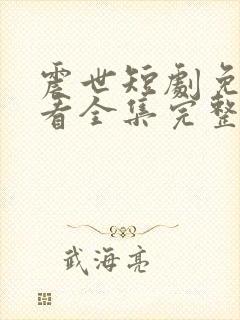 震世短劇免
看全集完整
武海亮